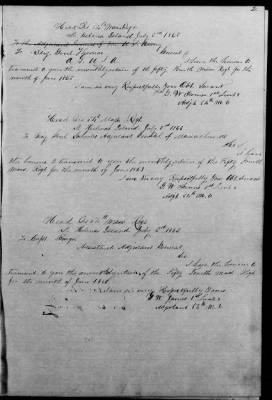 Head Qrs 54th Mass Regt
St Helena Island July 5th 1863
To
A. G. U. S. A
General
I have the honor to
transmit to you the monthly return of the Fifty Fourth Mass Regt for the
month of June 1863
I am Sir very Respectfully Your Obt. Servant
G. W. James 1st Lieut &
Adjt 54th M. V.
Head Qrs 54th Mass Regt
St Helena Island July 5th 1863
To Adjutant General of Massachusetts
Sir
I have
the honor to transmit to you the monthly return of the Fifty Fourth
Mass Regt for the month of June 1863
I am Sir very Respectfully Your Obt Servant
G. W. James 1st Lieut &
Adjt 54th M. V.
Head Qrs 54th Mass Regt
St Helena Island July 5th 1863
To Capt.
Assistant Adjutant General
Sir
I have the honor to
transmit to you the monthly return of the Fifty Fourth Mass Regt
for the month of June 1863
I remain Sir very Respectfully Yours
G. W. James 1st Lieut &
Adjutant 54th M. V.